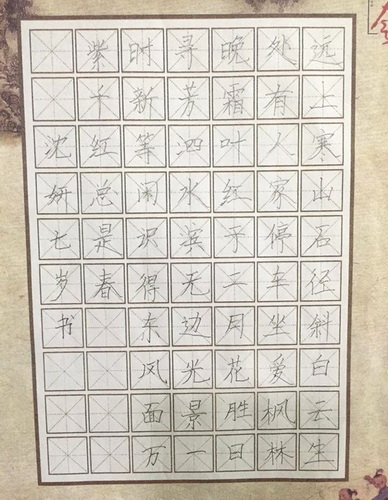 远上寒山石径斜白云生
处有人家停车坐爱枫林
晚霜叶红于二月花胜日
寻芳泗水滨无边光景一
时新等闲识得东风面万
紫千红总是春
沈妍七岁书